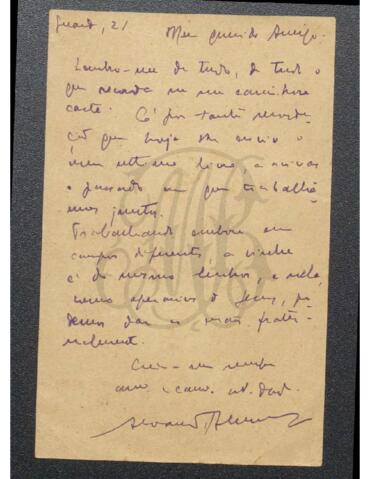 Guarda, 21
Meu querido Amigo.
Lembro-me de tudo, de tudo o
que recorda na sua carinhosa
carta. É por tanta recorda-
ção que hoje lhe envio o
meu ultimo livro a avivar
o passado em que trabalhá-
mos juntos.
Trabalhando embora em
campos diferentes, a vinha
é do mesmo Senhor, e nela,
como operarios de Jesus, po-
demos dar as mãos frater-
nalmente.
Creia-me sempre
amo. e camo.